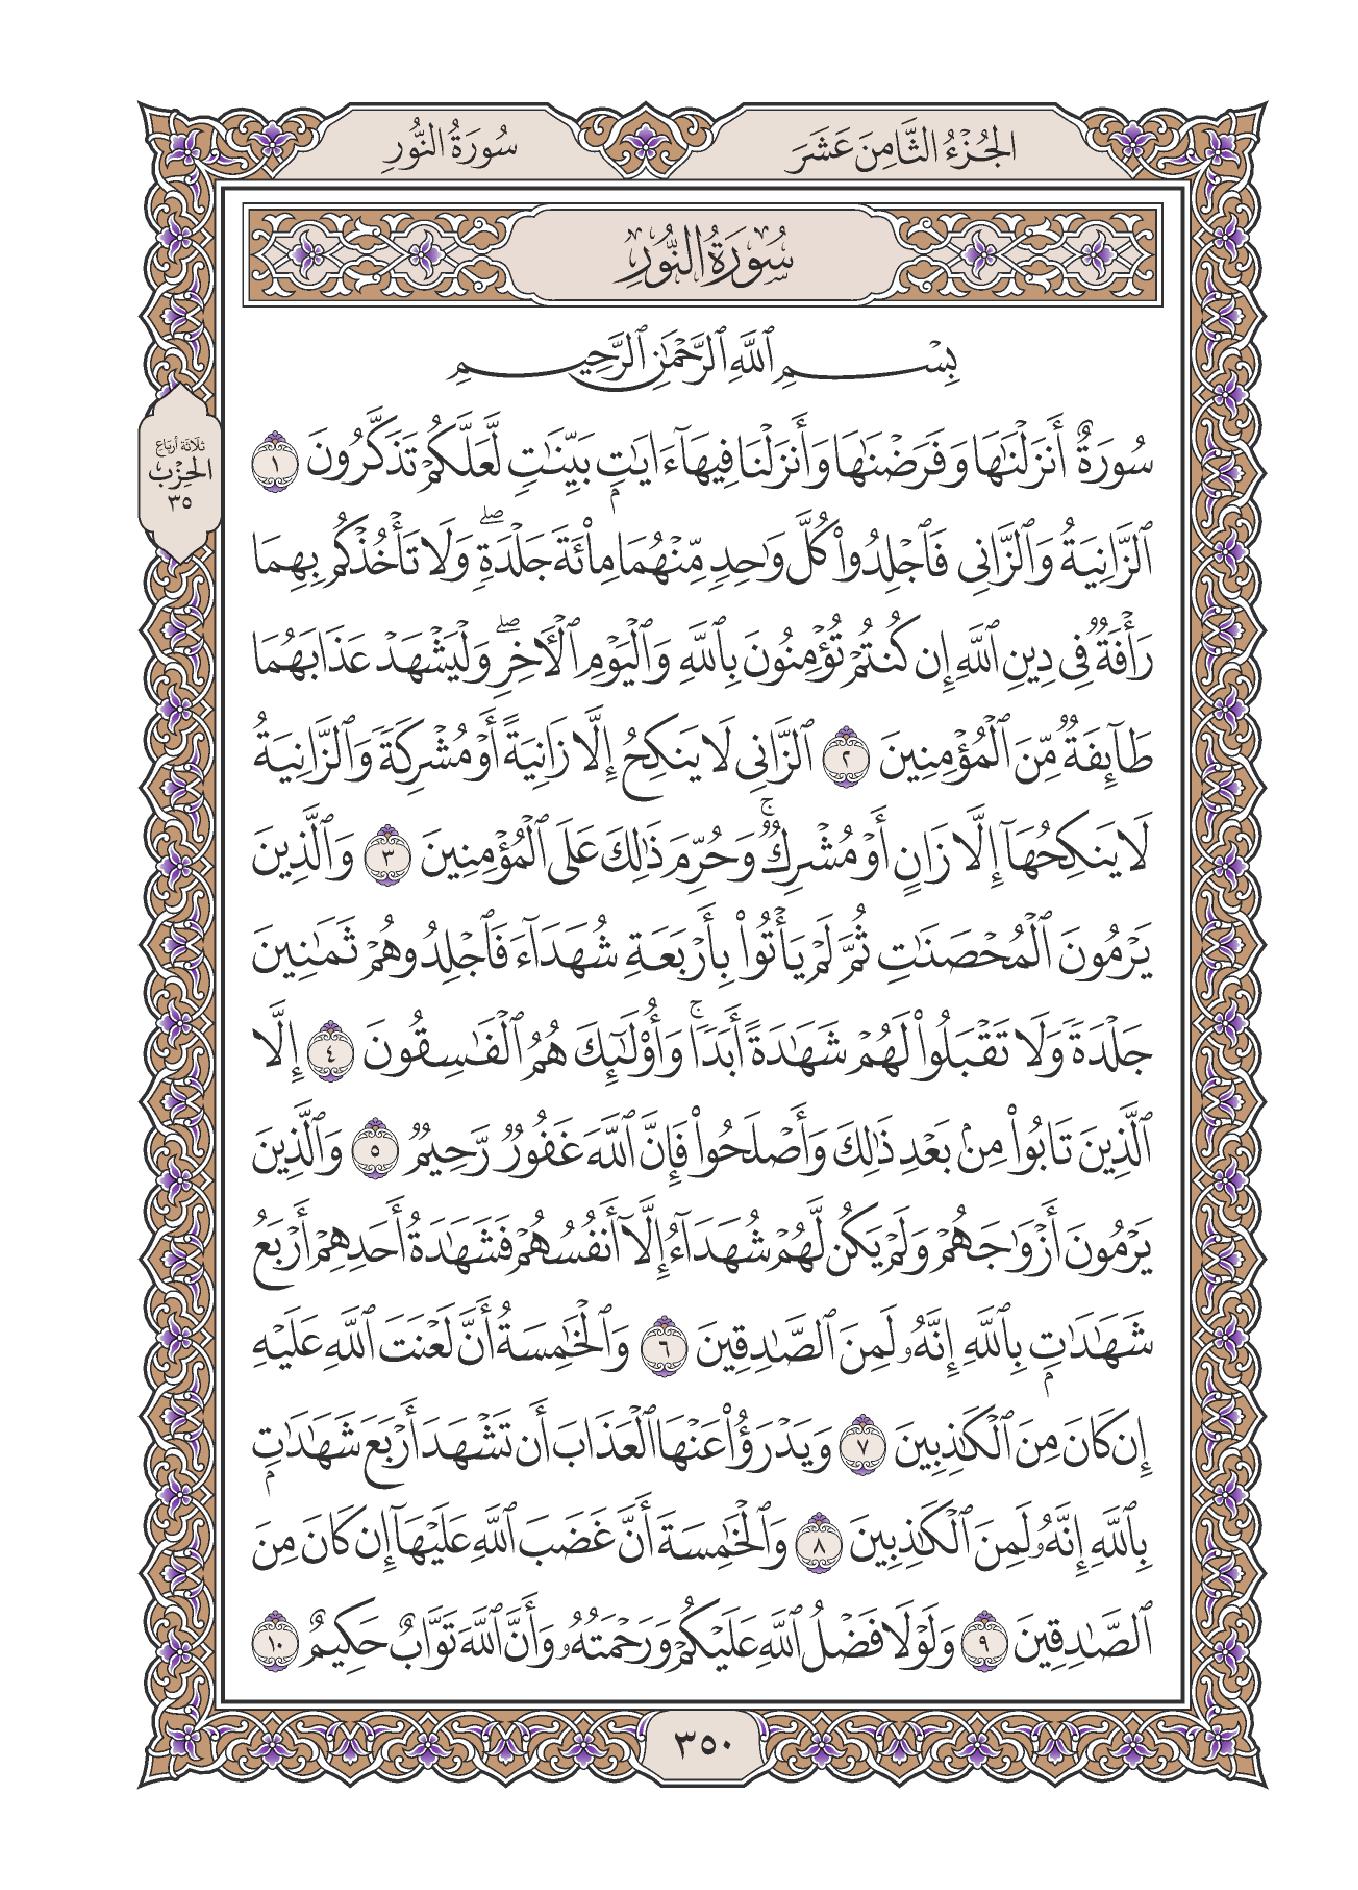 الجُزْءُ الثَّامِنَ عَشَرَ
سُورَةُ النُّورِ
سُورَةُ النُّورِ
بِسْمِ ٱللَّهِ ٱلرَّحْمَٰنِ ٱلرَّحِيمِ
سُورَةٌ أَنزَلْنَٰهَا وَفَرَضْنَٰهَا وَأَنزَلْنَا فِيهَآ ءَايَٰتِۭ بَيِّنَٰتٍ لَّعَلَّكُمْ تَذَكَّرُونَ ١
ٱلزَّانِيَةُ وَٱلزَّانِي فَٱجْلِدُوا۟ كُلَّ وَٰحِدٍ مِّنْهُمَا مِا۟ئَةَ جَلْدَةٍ ۖ وَلَا تَأْخُذْكُم بِهِمَا
رَأْفَةٌ فِي دِينِ ٱللَّهِ إِن كُنتُمْ تُؤْمِنُونَ بِٱللَّهِ وَٱلْيَوْمِ ٱلْءَاخِرِ ۖ وَلْيَشْهَدْ عَذَابَهُمَا
طَآئِفَةٌ مِّنَ ٱلْمُؤْمِنِينَ ٢ ٱلزَّانِي لَا يَنكِحُ إِلَّا زَانِيَةً أَوْ مُشْرِكَةً وَٱلزَّانِيَةُ
لَا يَنكِحُهَآ إِلَّا زَانٍ أَوْ مُشْرِكٌ ۚ وَحُرِّمَ ذَٰلِكَ عَلَى ٱلْمُؤْمِنِينَ ٣ وَٱلَّذِينَ
يَرْمُونَ ٱلْمُحْصَنَٰتِ ثُمَّ لَمْ يَأْتُوا۟ بِأَرْبَعَةِ شُهَدَآءَ فَٱجْلِدُوهُمْ ثَمَٰنِينَ
جَلْدَةً وَلَا تَقْبَلُوا۟ لَهُمْ شَهَٰدَةً أَبَدًا ۚ وَأُو۟لَٰٓئِكَ هُمُ ٱلْفَٰسِقُونَ ٤ إِلَّا
ٱلَّذِينَ تَابُوا۟ مِنۢ بَعْدِ ذَٰلِكَ وَأَصْلَحُوا۟ فَإِنَّ ٱللَّهَ غَفُورٌ رَّحِيمٌ ٥ وَٱلَّذِينَ
يَرْمُونَ أَزْوَٰجَهُمْ وَلَمْ يَكُن لَّهُمْ شُهَدَآءُ إِلَّآ أَنفُسُهُمْ فَشَهَٰدَةُ أَحَدِهِمْ أَرْبَعُ
شَهَٰدَٰتِۭ بِٱللَّهِ إِنَّهُۥ لَمِنَ ٱلصَّٰدِقِينَ ٦ وَٱلْخَٰمِسَةُ أَنَّ لَعْنَتَ ٱللَّهِ عَلَيْهِ
إِن كَانَ مِنَ ٱلْكَٰذِبِينَ ٧ وَيَدْرَؤُا۟ عَنْهَا ٱلْعَذَابَ أَن تَشْهَدَ أَرْبَعَ شَهَٰدَٰتِۭ
بِٱللَّهِ إِنَّهُۥ لَمِنَ ٱلْكَٰذِبِينَ ٨ وَٱلْخَٰمِسَةَ أَنَّ غَضَبَ ٱللَّهِ عَلَيْهَآ إِن كَانَ مِنَ
ٱلصَّٰدِقِينَ ٩ وَلَوْلَا فَضْلُ ٱللَّهِ عَلَيْكُمْ وَرَحْمَتُهُۥ وَأَنَّ ٱللَّهَ تَوَّابٌ حَكِيمٌ ١٠
ثلاثة أرباع
الحِزْب
٣٥
٣٥٠